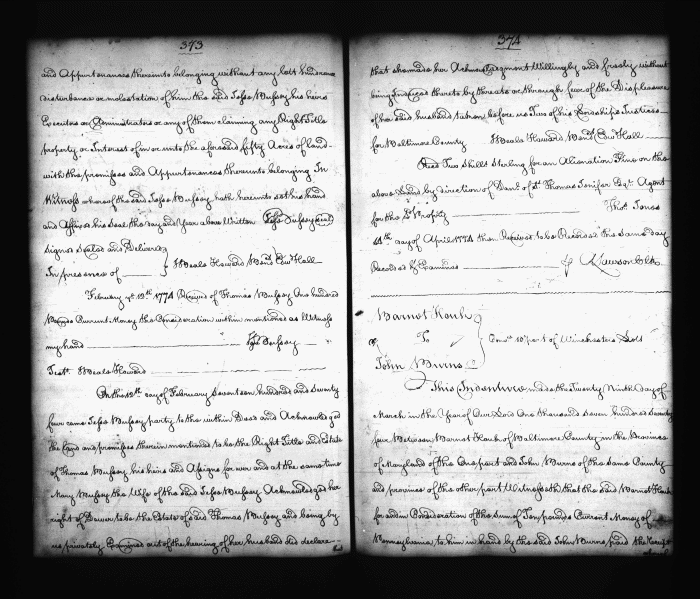 373
and Appurtenances thereunto belonging without any lett hindrance
disturbance or molestation of him the said Jesse Bussey his heirs
Executors or Administrators or any of them claiming any Right Title
property or Interest of in or unto the aforesaid fifty Acres of Land
with the premises and Appurtenances thereunto belonging In
Witness whereof the said Jesse Bussey hath hereunto set his hand
and Affixed his Seal the day and Year above Written Jesse Bussey seal
Signed Sealed and Delivered
In presence of Heals Howard Benj
February ye 12th 1774 Received of Thomas Bussey One hundred
Pounds Current Money the Consideration within mentioned as Witness
my hand Jesse Bussey
Test Heals Howard
On the 12th day of February Seventeen hundred and Seventy
four came Jesse Bussey party to the within Deed and Acknowledged
the Land and premises therein mentioned to be the Right Title and Estate
of Thomas Bussey his heirs and Assigns for ever and at the same time
Mary Bussey the Wife of the said Jesse Bussey Acknowledged her
right of Dower to be the Estate of said Thomas Bussey and being by
us privately Examined out of the hearing of her husband did declare
374
that she made her Acknowledgment Willingly and freely without
being Induced thereto by threats or through fear of the Displeasure
of her said husband taken before us Two of his Lordships Justices
for Baltimore County Heals Howard Benj
Recd Two Shills Sterling for an Alienation Fine on the
above Land by direction of Danl of St Thomas Jenifer Esqr Agent
for the Ld Propty Thos Jones
14th day of April 1774 then Received to be Recorded the same day
Recorded & Examined A Lawson Clk
Barnet
To
John Burns
One 10th part of Winchesters Lott
This Indenture made the Twenty Ninth Day of
March in the Year of Our Lord One thousand seven hundred Seventy
four Between Barnet of Baltimore County in the Province
of Maryland of the One part and John Burns of the same County
and province of the other part Witnesseth that the said Barnet
for and in Consideration of the Sum of Ten pounds Current Money of
Pennsylvania to him in hand by the said John Burns paid the Receipt